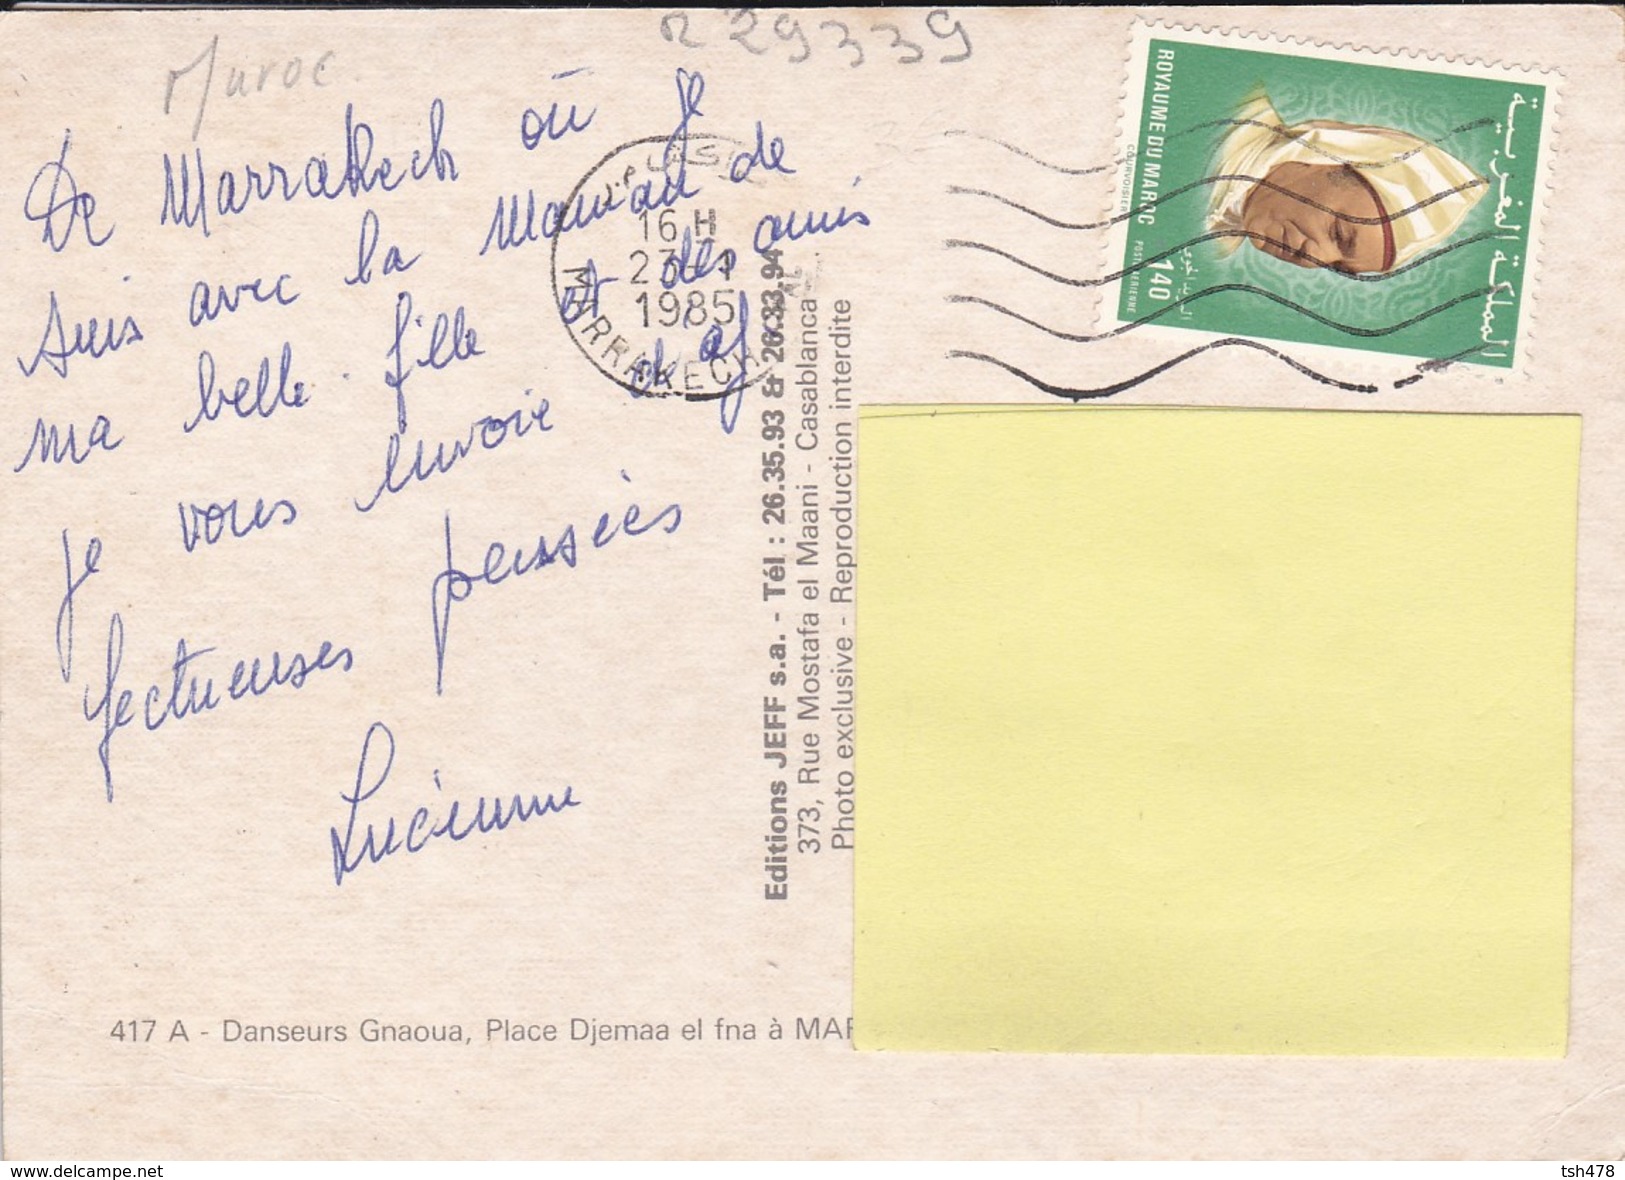 Maroc
R 29339
De Marrakech où je
suis avec la Maman de
ma belle-fille et des amis
je vous envoie d'af
fectueuses pensées
Lucienne
16 H
1985
MARRAKECH
ROYAUME DU MAROC
COURVOISIER
POSTE AERIENNE
1,40
المملكة المغربية
البريد الجوي
Editions JEFF s.a. - Tél : 26.35.93 & 26.33.94
373, Rue Mostafa el Maani - Casablanca
Photo exclusive - Reproduction interdite
417 A - Danseurs Gnaoua, Place Djemaa el fna à MAR
www.delcampe.net
tsh478